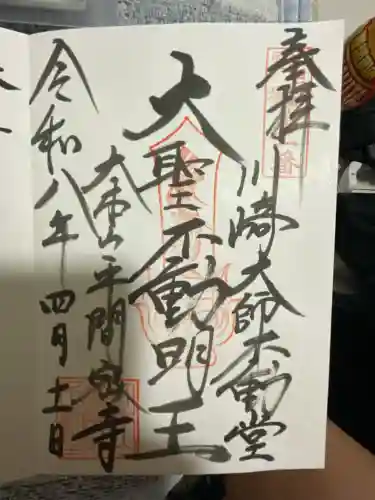 奉拝
川崎大師不動堂
大聖不動明王
大本山平間寺
令和八年四月十一日